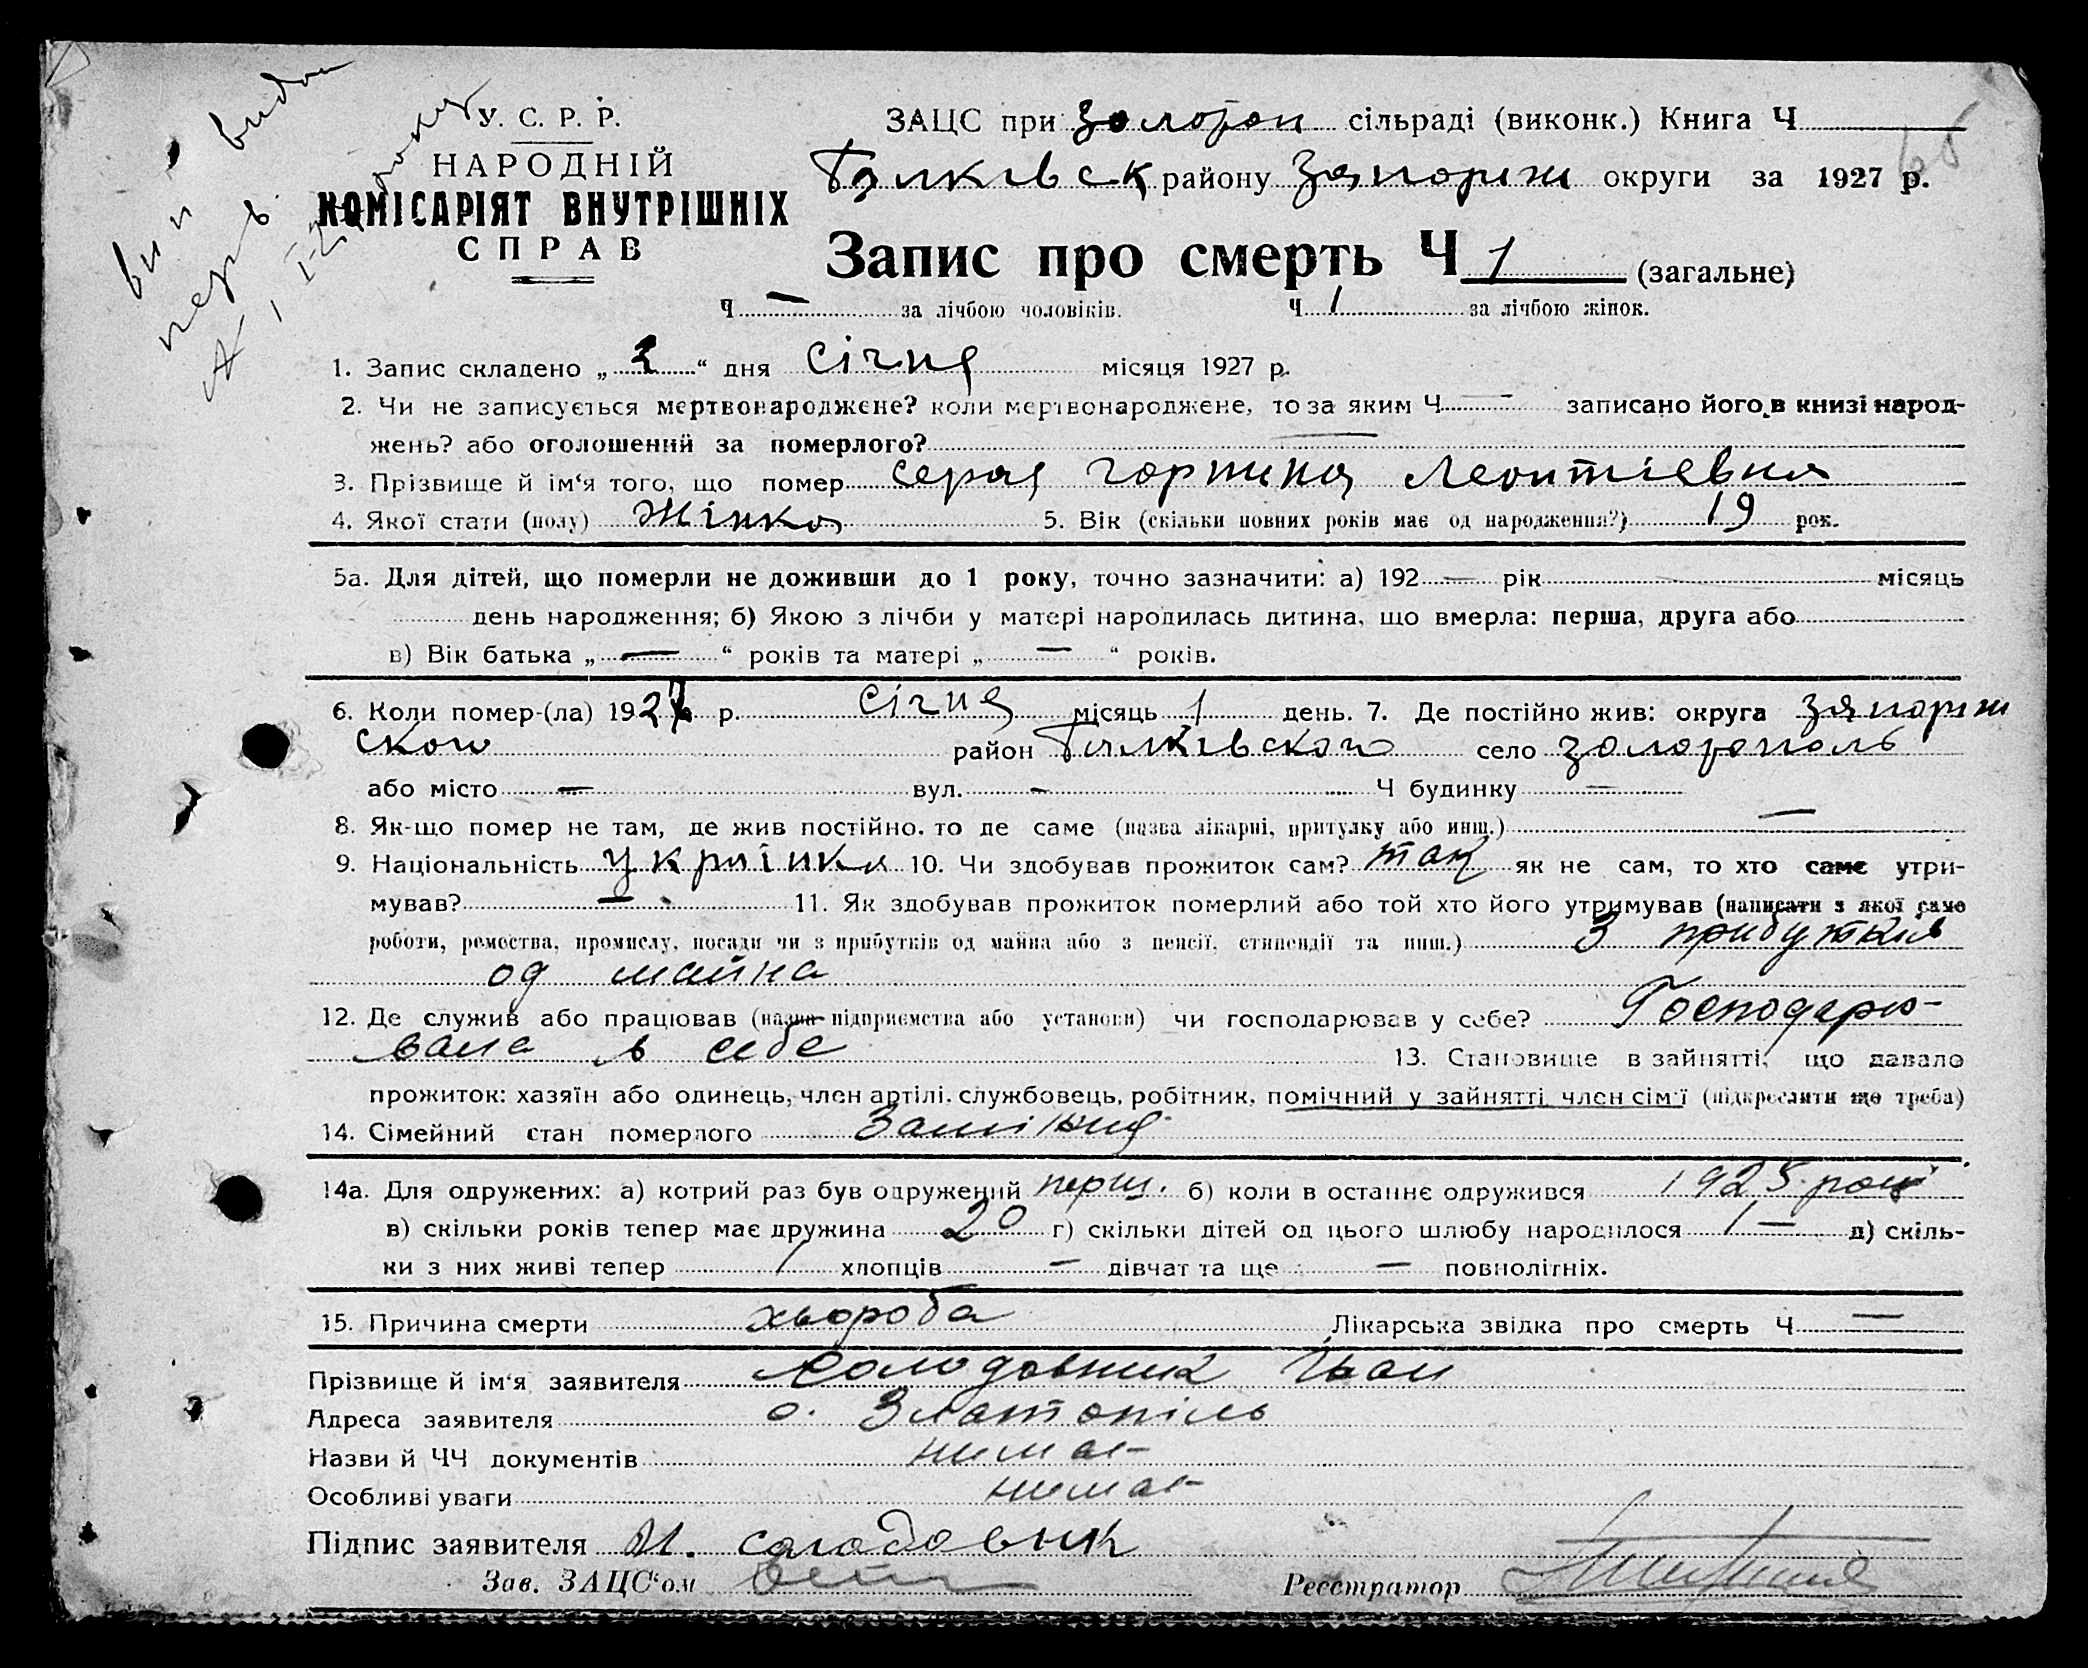 вип видан
перв.
У. С. Р. Р.
НАРОДНІЙ
КОМІСАРІЯТ ВНУТРІШНІХ
СПРАВ
ЗАЦС при Золотоп сільраді (виконк.) Книга Ч
району Запоріж округи за 1927 р.
Запис про смерть Ч 1 (загальне)
Ч — за лічбою чоловіків. Ч 1 за лічбою жінок.
1. Запис складено „ “ дня Січня місяця 1927 р.
2. Чи не записується мертвонароджене? коли мертвонароджене, то за яким Ч — записано його в книзі народ-
жень? або оголошений за померлого? —
3. Прізвище й ім‘я того, що помер Серая Горпина Леонтіевна
4. Якої стати (полу) Жінка 5. Вік (скільки повних років має од народження?) 19 рок.
5а. Для дітей, що померли не доживши до 1 року, точно зазначити: а) 192 — рік місяць
день народження; б) Якою з лічби у матері народилась дитина, що вмерла: перша, друга або
в) Вік батька „ — “ років та матері „ — “ років.
6. Коли помер-(ла) 1927 р. Січня місяць 1 день. 7. Де постійно жив: округа Запоріж
ского район село Золотополь
або місто — вул. — Ч будинку —
8. Як-що помер не там, де жив постійно. то де саме (назва лікарні, притулку або инш.) —
9. Національність Українка 10. Чи здобував прожиток сам? так як не сам, то хто саме утри-
мував? — 11. Як здобував прожиток померлий або той хто його утримував (написати з якої само
роботи, ремества, промислу, посади чи з прибутків од майна або з пенсії, стипендії та инш.) З прибутків
од майна
12. Де служив або працював (назва підприємства або установи) чи господарював у себе? Господарю-
вала в себе 13. Становище в зайнятті, що давало
прожиток: хазяїн або одинець, член артілі, службовець, робітник, помічний у зайнятті член сім‘ї (підкреслити що треба)
14. Сімейний стан померлого Заміжня
14а. Для одружених: а) котрий раз був одружений перш. б) коли в останнє одружився 1925 році
в) скільки років тепер має дружина 20 г) скільки дітей од цього шлюбу народилося 1 — д) скіль-
ки з них живі тепер 1 хлопців — дівчат та ще — повнолітніх.
15. Причина смерти хвороба Лікарська звідка про смерть Ч —
Прізвище й ім‘я заявителя Солодовник Іван
Адреса заявителя с. Златопіль
Назви й ЧЧ документів нимає
Особливі уваги нимає
Підпис заявителя И. Солодовнк
Зав. ЗАЦС“ом
Реєстратор